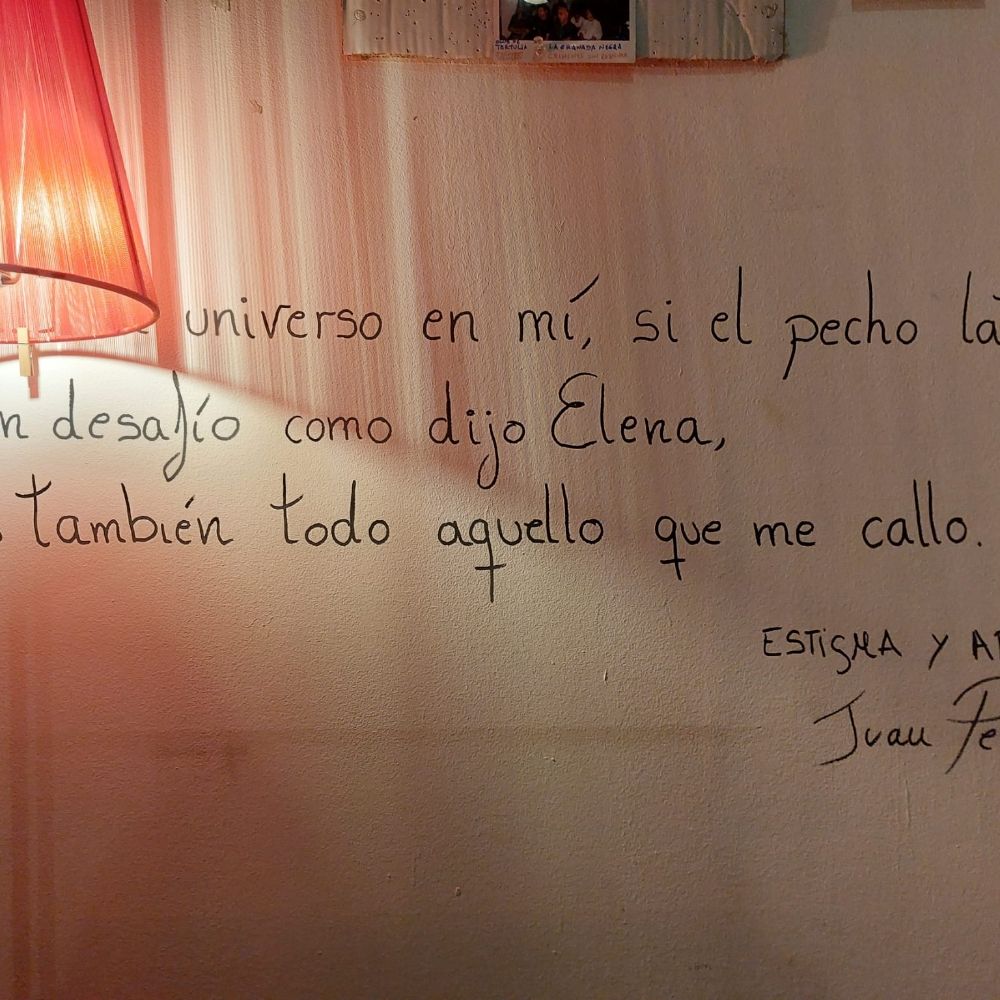 CLUB DE TERTULIA LA GRANADA NEGRA
universo en mí, si el pecho la
n desafío como dijo Elena,
también todo aquello que me callo.
ESTIGMA Y
Juan Pe